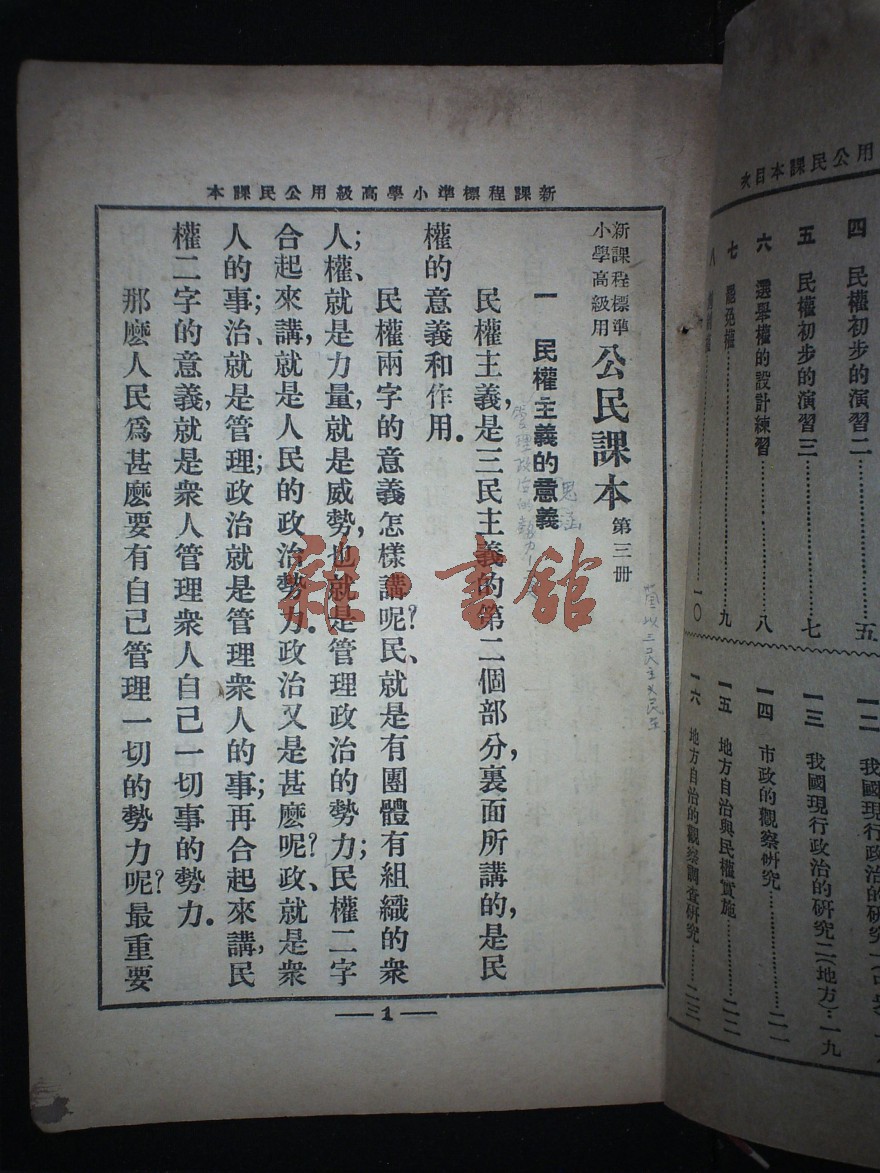 新課程標準小學高級用公民課本
新課程標準
小學高級用
公民課本 第三冊
一 民權主義的意義
民權主義，是三民主義的第二個部分，裏面所講的，是民
權的意義和作用。
民權兩字的意義怎樣講呢？民、就是有團體有組織的衆
人；權、就是力量，就是威勢，也就是管理政治的勢力；民權二字
合起來講，就是人民的政治勢力。政治又是甚麼呢？政、就是衆
人的事；治、就是管理；政治就是管理衆人的事；再合起來講，民
權二字的意義，就是衆人管理衆人自己一切事的勢力。
那麼人民爲甚麼要有自己管理一切的勢力呢？最重要
管理政治的勢力
—1—
雜·書館
用公民課本目次
四 民權初步的演習二……五
五 民權初步的演習三……七
六 選舉權的設計練習……八
七 罷免權……九
八
一〇
一二 我國現行政治的研究一
一三 我國現行政治的研究二（地方）…一九
一四 市政的觀察研究……二一
一五 地方自治與民權實施……二二
一六 地方自治的觀察調查研究……二三